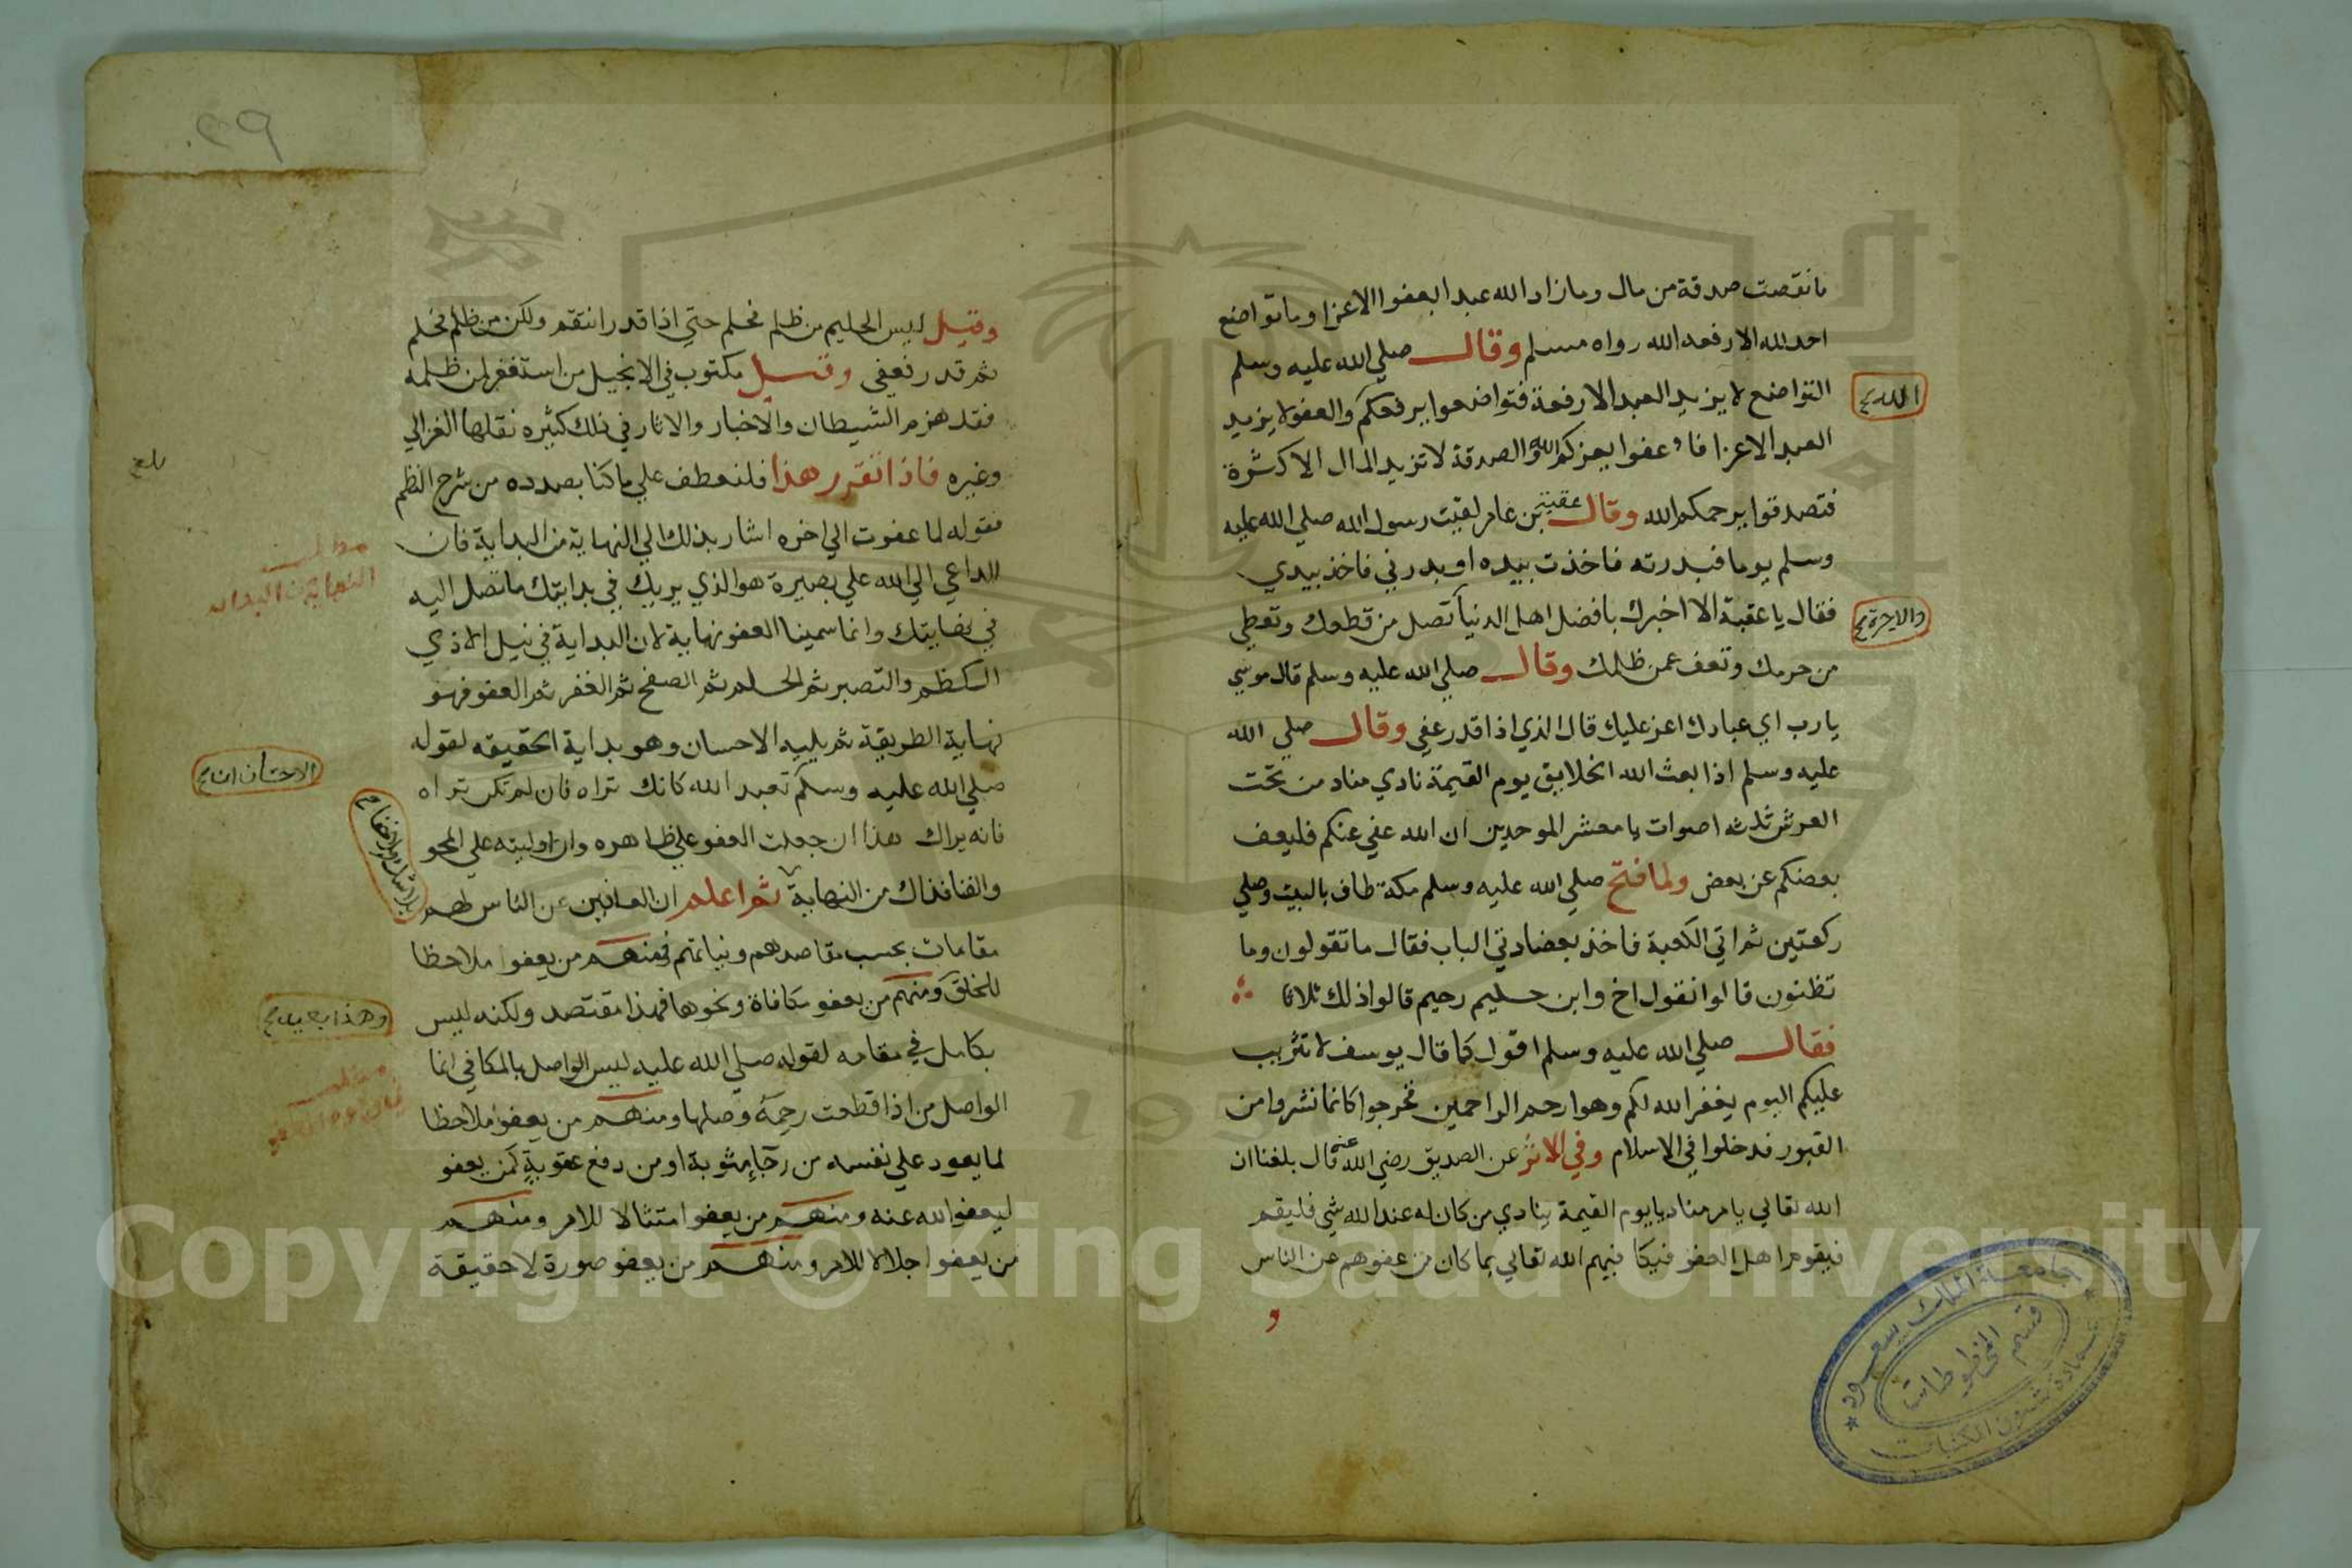 ما نقصت صدقة من مال وما زاد الله عبدا بعفوا الا عزا وما تواضع
احد لله الا رفعه الله رواه مسلم وقال صلي الله عليه وسلم
التواضع لا يزيد العبد الا رفعة فتواضعوا يرفعكم والعفو لا يزيد
الله
العبد الا عزا فاعفوا يعزكم الله والصدقة لا تزيد المال الا كثرة
فتصدقوا يرحمكم الله وقال عقبة بن عامر لقيت رسول الله صلي الله عليه
وسلم يوما فبدرته فاخذت بيده او بدرني فاخذ بيدي
فقال يا عقبة الا اخبرك بافضل اهل الدنيا تصل من قطعك وتعطي
والاخرة
من حرمك وتعف عمن ظلمك وقال صلي الله عليه وسلم قال موسي
يا رب اي عبادك اعز عليك قال الذي اذا قدر عفي وقال صلي الله
عليه وسلم اذا بعث الله الخلايق يوم القيمة نادي مناد من تحت
العرش ثلثه اصوات يا معشر الموحدين ان الله عفي عنكم فليعف
بعضكم عن بعض ولما فتح صلي الله عليه وسلم مكة طاف بالبيت وصلي
ركعتين ثم اتي الكعبة فاخذ بعضادتي الباب فقال ما تقولون وما
تظنون قالوا نقول اخ وابن حليم رحيم قالوا ذلك ثلاثا
فقال صلي الله عليه وسلم اقول كما قال يوسف لا تثريب
عليكم اليوم يغفر الله لكم وهو ارحم الراحمين فخرجوا كانما نشروا من
القبور فدخلوا في الاسلام وفي الاثر عن الصديق رضي الله عنه قال بلغنا ان
الله تعالي يامر مناديا يوم القيمة ينادي من كان له عند الله شي فليقم
فيقوم اهل العفو فيكافيهم الله تعالي بما كان من عفوهم عن الناس
و
جامعة الملك سعود
قسم المخطوطات
عمادة شئون المكتبات
وقيل ليس الحليم من ظلم فحلم حتي اذا قدر انتقم ولكن من ظلم فحلم
ثم قدر فعفي وقيل مكتوب في الانجيل من استغفر لمن ظلمه
فقد هزم الشيطان والاخبار والاثار في ذلك كثيره نقلها الغزالي
وغيره فاذا تقرر هذا فلنعطف علي ما كنا بصدده من شرح النظم
فقوله لما عفوت الي اخره اشار بذلك الي النهاية من البداية فان
مطلب
الداعي الي الله علي بصيرة هو الذي يريك في بدايتك ما تصل اليه
في نهايتك وانما سمينا العفو نهاية لان البداية في نيل الاذي
الكظم والتصبر ثم الحلم ثم الصفح ثم الغفر ثم العفو فهو
نهاية الطريقة ثم يليه الاحسان وهو بداية الحقيقه لقوله
الاحسان ان
صلي الله عليه وسلم تعبد الله كانك تراه فان لم تكن تراه
فانه يراك هذا ان جعلت العفو علي ظاهره وان اوليته علي المحو
والفنا فذاك من النهاية ثم اعلم ان العافين عن الناس لهم
مقامات بحسب مقاصدهم ونياتهم فمنهم من يعفوا ملاحظا
للخلق ومنهم من يعفو مكافاة ونحوها فهذا مقتصد ولكنه ليس
بكامل في مقامه لقوله صلي الله عليه ليس الواصل بالمكافي انما
مطلب
الواصل من اذا قطعت رحمه وصلها ومنهم من يعفوا ملاحظا
لما يعود علي نفسه من رجآء مثوبة او من دفع عقوبة كمن يعفو
ليعفو الله عنه ومنهم من يعفوا متثالا للامر ومنهم
من يعفوا جلالا للامر ومنهم من يعفو صورة لا حقيقة
Copyright © King Saud University